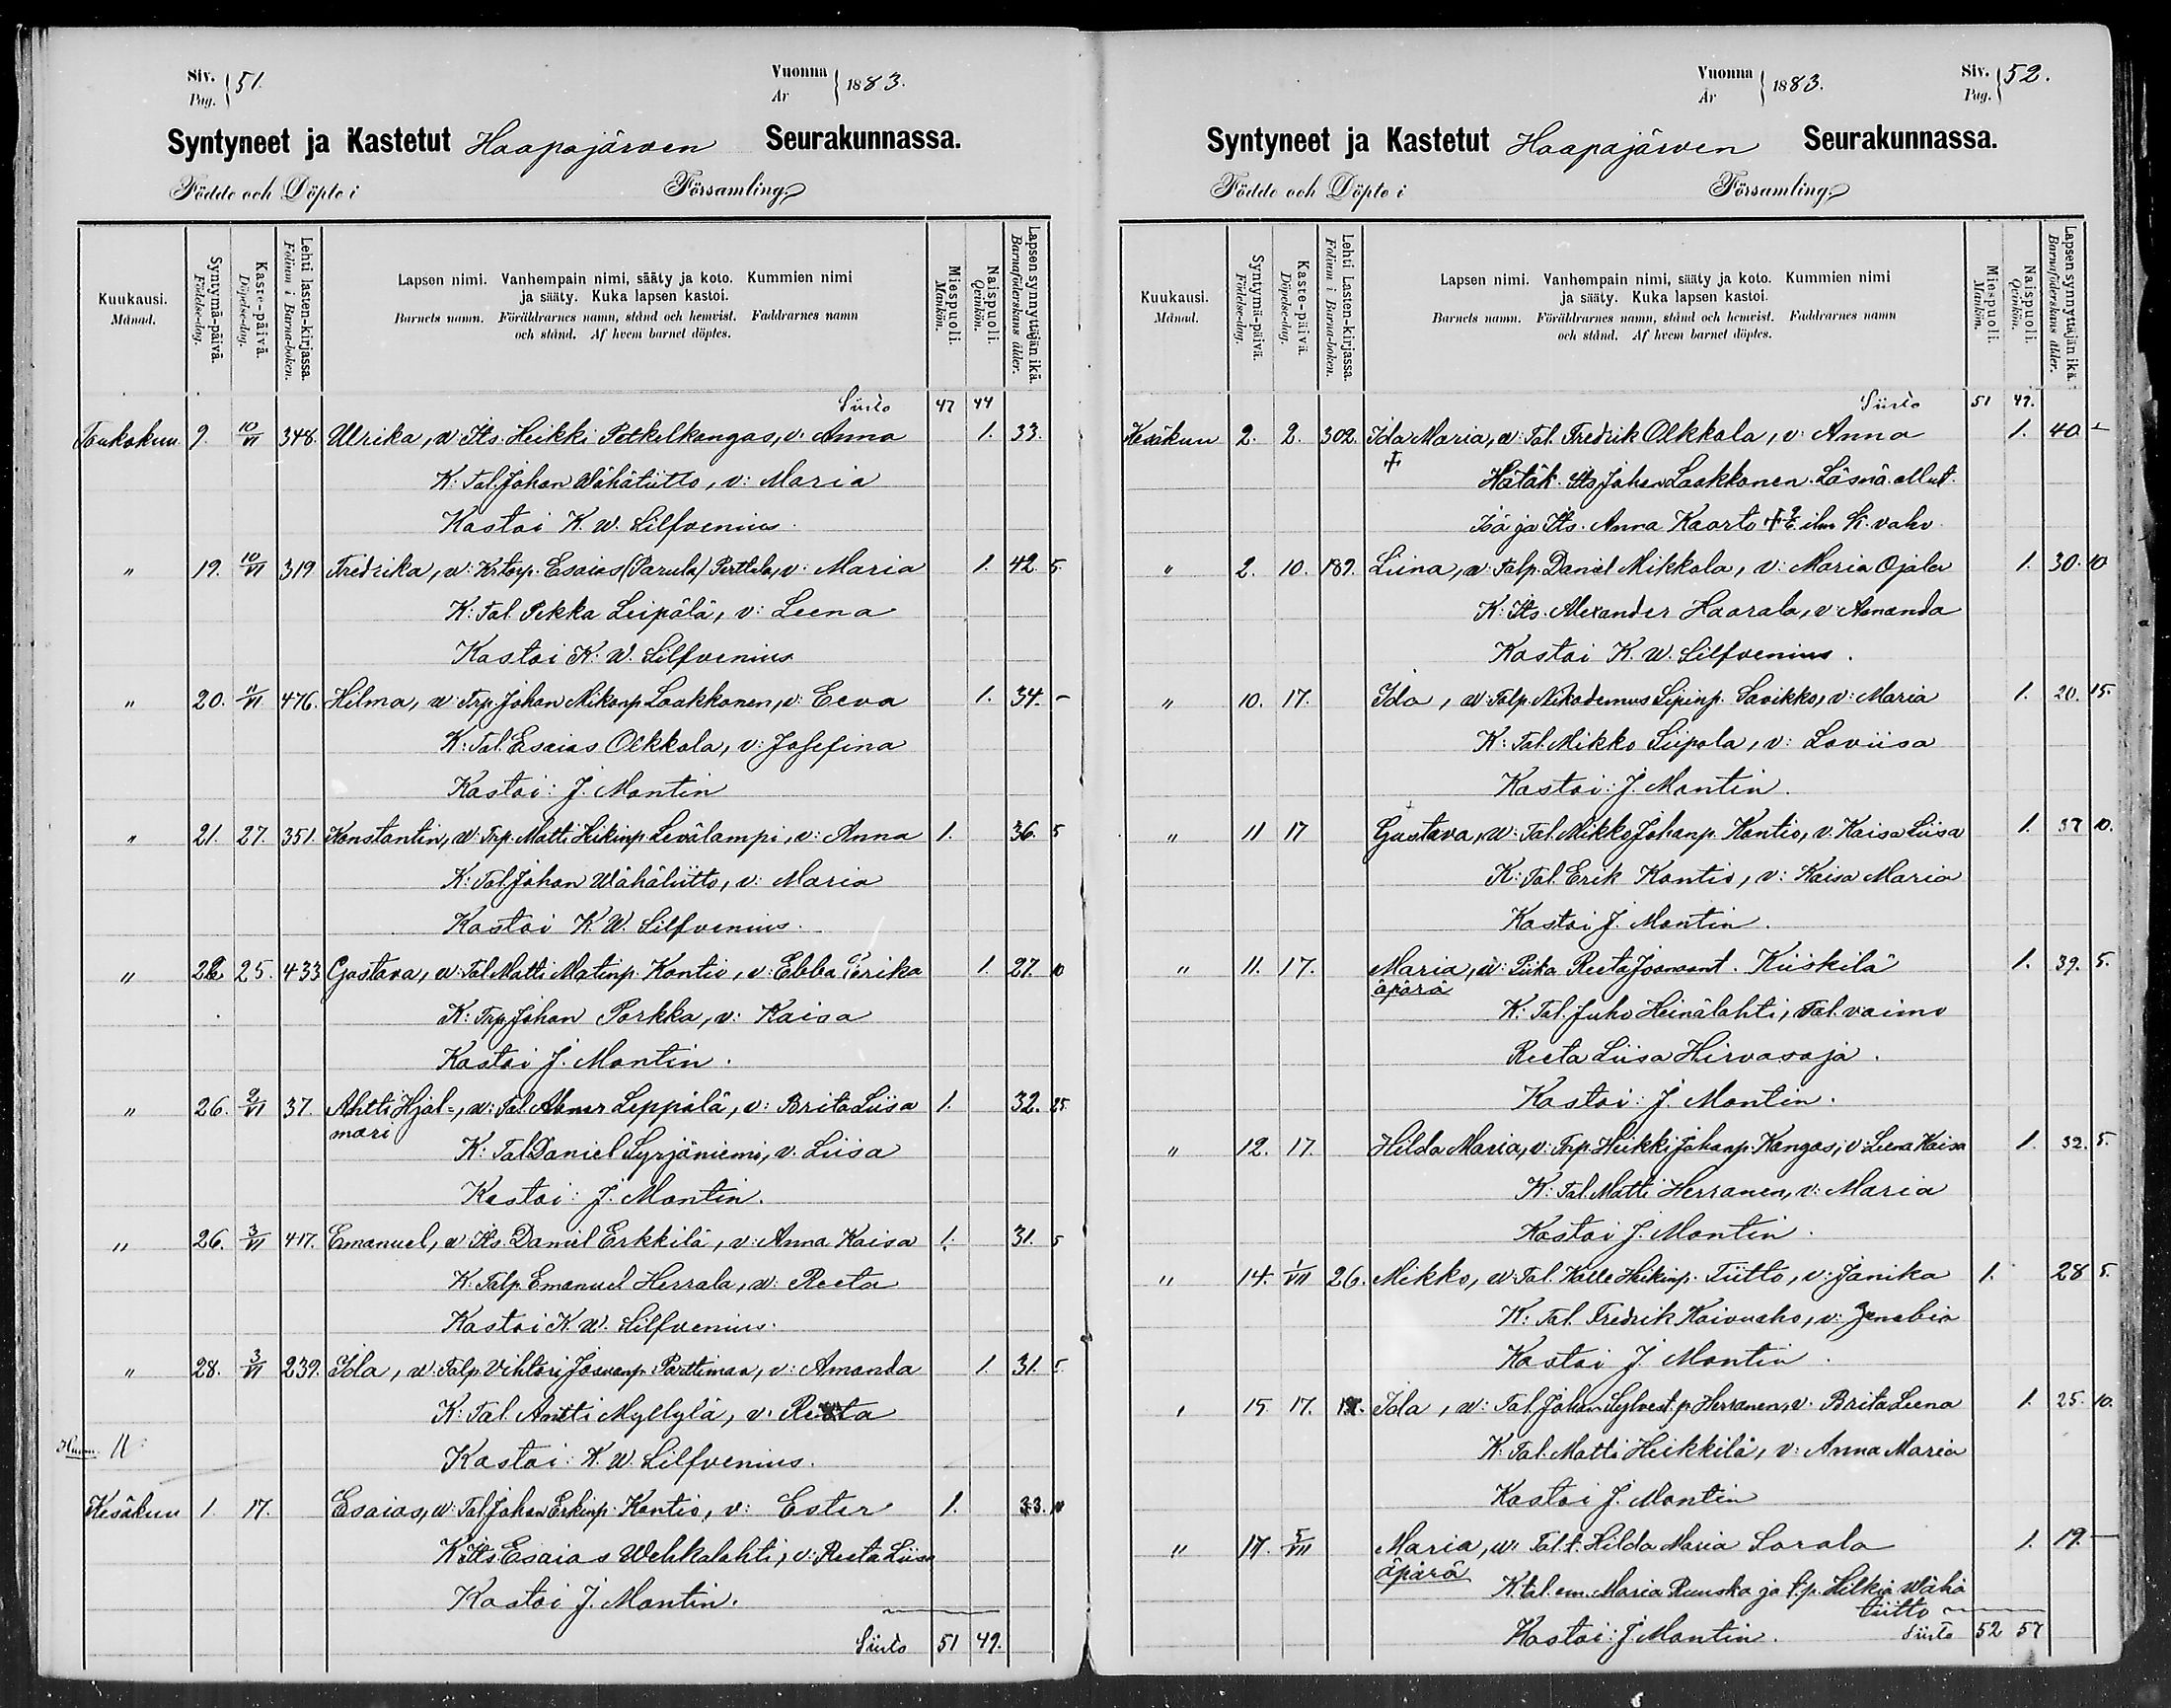 Siv. Pag. } 51.
Vuonna År } 1883.
Syntyneet ja Kastetut Haapajärven Seurakunnassa.
Födde och Döpte i Församling.
Kuukausi. Månad.
Syntymä-päivä. Födelse-dag.
Kaste-päivä. Döpelse-dag.
Lehti lasten-kirjassa. Folium i Barna-boken.
Lapsen nimi. Vanhempain nimi, sääty ja koto. Kummien nimi
ja sääty. Kuka lapsen kastoi.
Barnets namn. Föräldrarnes namn, stånd och hemvist. Faddrarnes namn
och stånd. Af hvem barnet döptes.
Miespuoli. Mankön.
Naispuoli. Qvinkön.
Lapsen synnyttäjän ikä. Barnaföderskans ålder.
Siirto 47 44
Toukokuu 9. 10/VI 348. Ulrika, w: Its. Heikki Potkelkangas, v: Anna 1. 33.
K: Tal. Johan Wähätiitto, v: Maria
Kastoi K. W. Lilfvenius.
" 19. 10/VI 319 Fredrika, w: Krtorp. Esaias (Parula) Perttula, v: Maria 1. 42. 5
K: Tal. Pekka Leipälä, v: Leena
Kastoi K. W. Lilfvenius
" 20. 11/VI 476. Hilma, w: Trp. Johan Mikonp. Laakkonen, v: Eeva 1. 34. –
K: Tal. Esaias Olkkola, v: Josefina
Kastoi: J. Montin
" 21. 27. 351. Konstantin, w: Trp. Matti Heikinp. Levälampi, v: Anna 1. 36. 5
K: Tal. Johan Wähätiitto, v: Maria
Kastoi K. W. Lilfvenius.
" 25. 433 Gustava, w: Tal. Matti Matinp. Kontio, v: Ebba 1. 27. 10
K: Trp. Johan Porkka, v: Kaisa
Kastoi J. Montin.
" 26. 2/VI 37. Ahtti Hjal-, w: Tal. Abner Leppälä, v: Brita Liisa 1. 32. 25
mari
K: Tal. Daniel Syrjäniemi, v: Liisa
Kastoi: J. Montin.
" 26. 3/VI 417. Emanuel, w: Its. Daniel Erkkilä, v: Anna Kaisa 1. 31. 5
K: Talp. Emanuel Herrala, w: Reeta
Kastoi K. W. Lilfvenius.
" 28. 3/VI 239. Ida, w: Talp. Vihtori Joonanp. Parttimaa, v: Amanda 1. 31. 5.
K: Tal. Antti Myllylä, v: Reeta
Kastoi: K. W. Lilfvenius.
Kesäkuu 1. 17. Esaias, w: Tal. Johan Erkinp. Kontio, v: Ester 1. 33. 10
K: Its. Esaias Wehkalahti, v: Reeta Liisa
Kastoi J. Montin.
Siirto 51 49.
Vuonna År } 1883.
Siv. Pag. } 52.
Syntyneet ja Kastetut Haapajärven Seurakunnassa.
Födde och Döpte i Församling.
Kuukausi. Månad.
Syntymä-päivä. Födelse-dag.
Kaste-päivä. Döpelse-dag.
Lehti Lasten-kirjassa. Folium i Barna-boken.
Lapsen nimi. Vanhempain nimi, sääty ja koto. Kummien nimi
ja sääty. Kuka lapsen kastoi.
Barnets namn. Föräldrarnes namn, stånd och hemvist. Faddrarnes namn
och stånd. Af hvem barnet döptes.
Miespuoli. Mankön.
Naispuoli. Qvinkön.
Lapsen synnyttäjän ikä. Barnaföderskans ålder.
Siirto 51 49.
Kesäkuu 2. 2. 302. Ida Maria, w: Tal. Fredrik Olkkola, v: Anna 1. 40 –
Hätäk. Its. Johan Laakkonen. Läsnä ollut.
Isä ja Its. Anna Kaarto
" 2. 10. 189. Liina, w: Talp. Daniel Mikkola, v: Maria Ojala 1. 30. 10
K: Its. Alexander Haarala, v: Amanda
Kastoi K. W. Lilfvenius.
" 10. 17. Ida, w: Talp. Nikodemus Sipinp. Savikko, v: Maria 1. 20. 15.
K: Tal. Mikko Siipola, v: Loviisa
Kastoi: J. Montin.
" 11 17 Gustava, w: Tal. Mikko Johanp. Kontio, v: Kaisa Liisa 1. 37 10.
K: Tal. Erik Kontio, v: Kaisa Maria
Kastoi J. Montin.
" 11. 17. Maria, w: Piika Reeta Joonaant. Kiiskilä 1. 39. 5.
äpärä
K: Tal. Juho Heinälahti, Tal. vaimo
Reeta Liisa Hirvasoja.
Kastoi: J. Montin.
" 12. 17. Hilda Maria, v: Trp. Heikki Johanp. Kangas, v: Leena Kaisa 1. 32. 5.
K: Tal. Matti Herranen, v: Maria
Kastoi J. Montin.
" 14. 1/VII 26. Mikko, w: Tal. Kalle Heikinp. Tiitto, v: Janika 1. 28 5.
K: Tal. Fredrik Kaivuaho, v: Zenobia
Kastoi J. Montin.
" 15 17. Ida, w: Tal. Johan Sylvest. p. Herranen, v: Brita Leena 1. 25. 10.
K: Tal. Matti Heikkilä, v: Anna Maria
Kastoi J. Montin
" 17. 5/VII Maria, w: Tal. t. Hilda Maria Sorola 1. 19. –
äpärä
K: tal. em. Maria Ruuska ja t.p. Hilkia Wähä
tiitto
Kastoi: J. Montin. Siirto 52 57